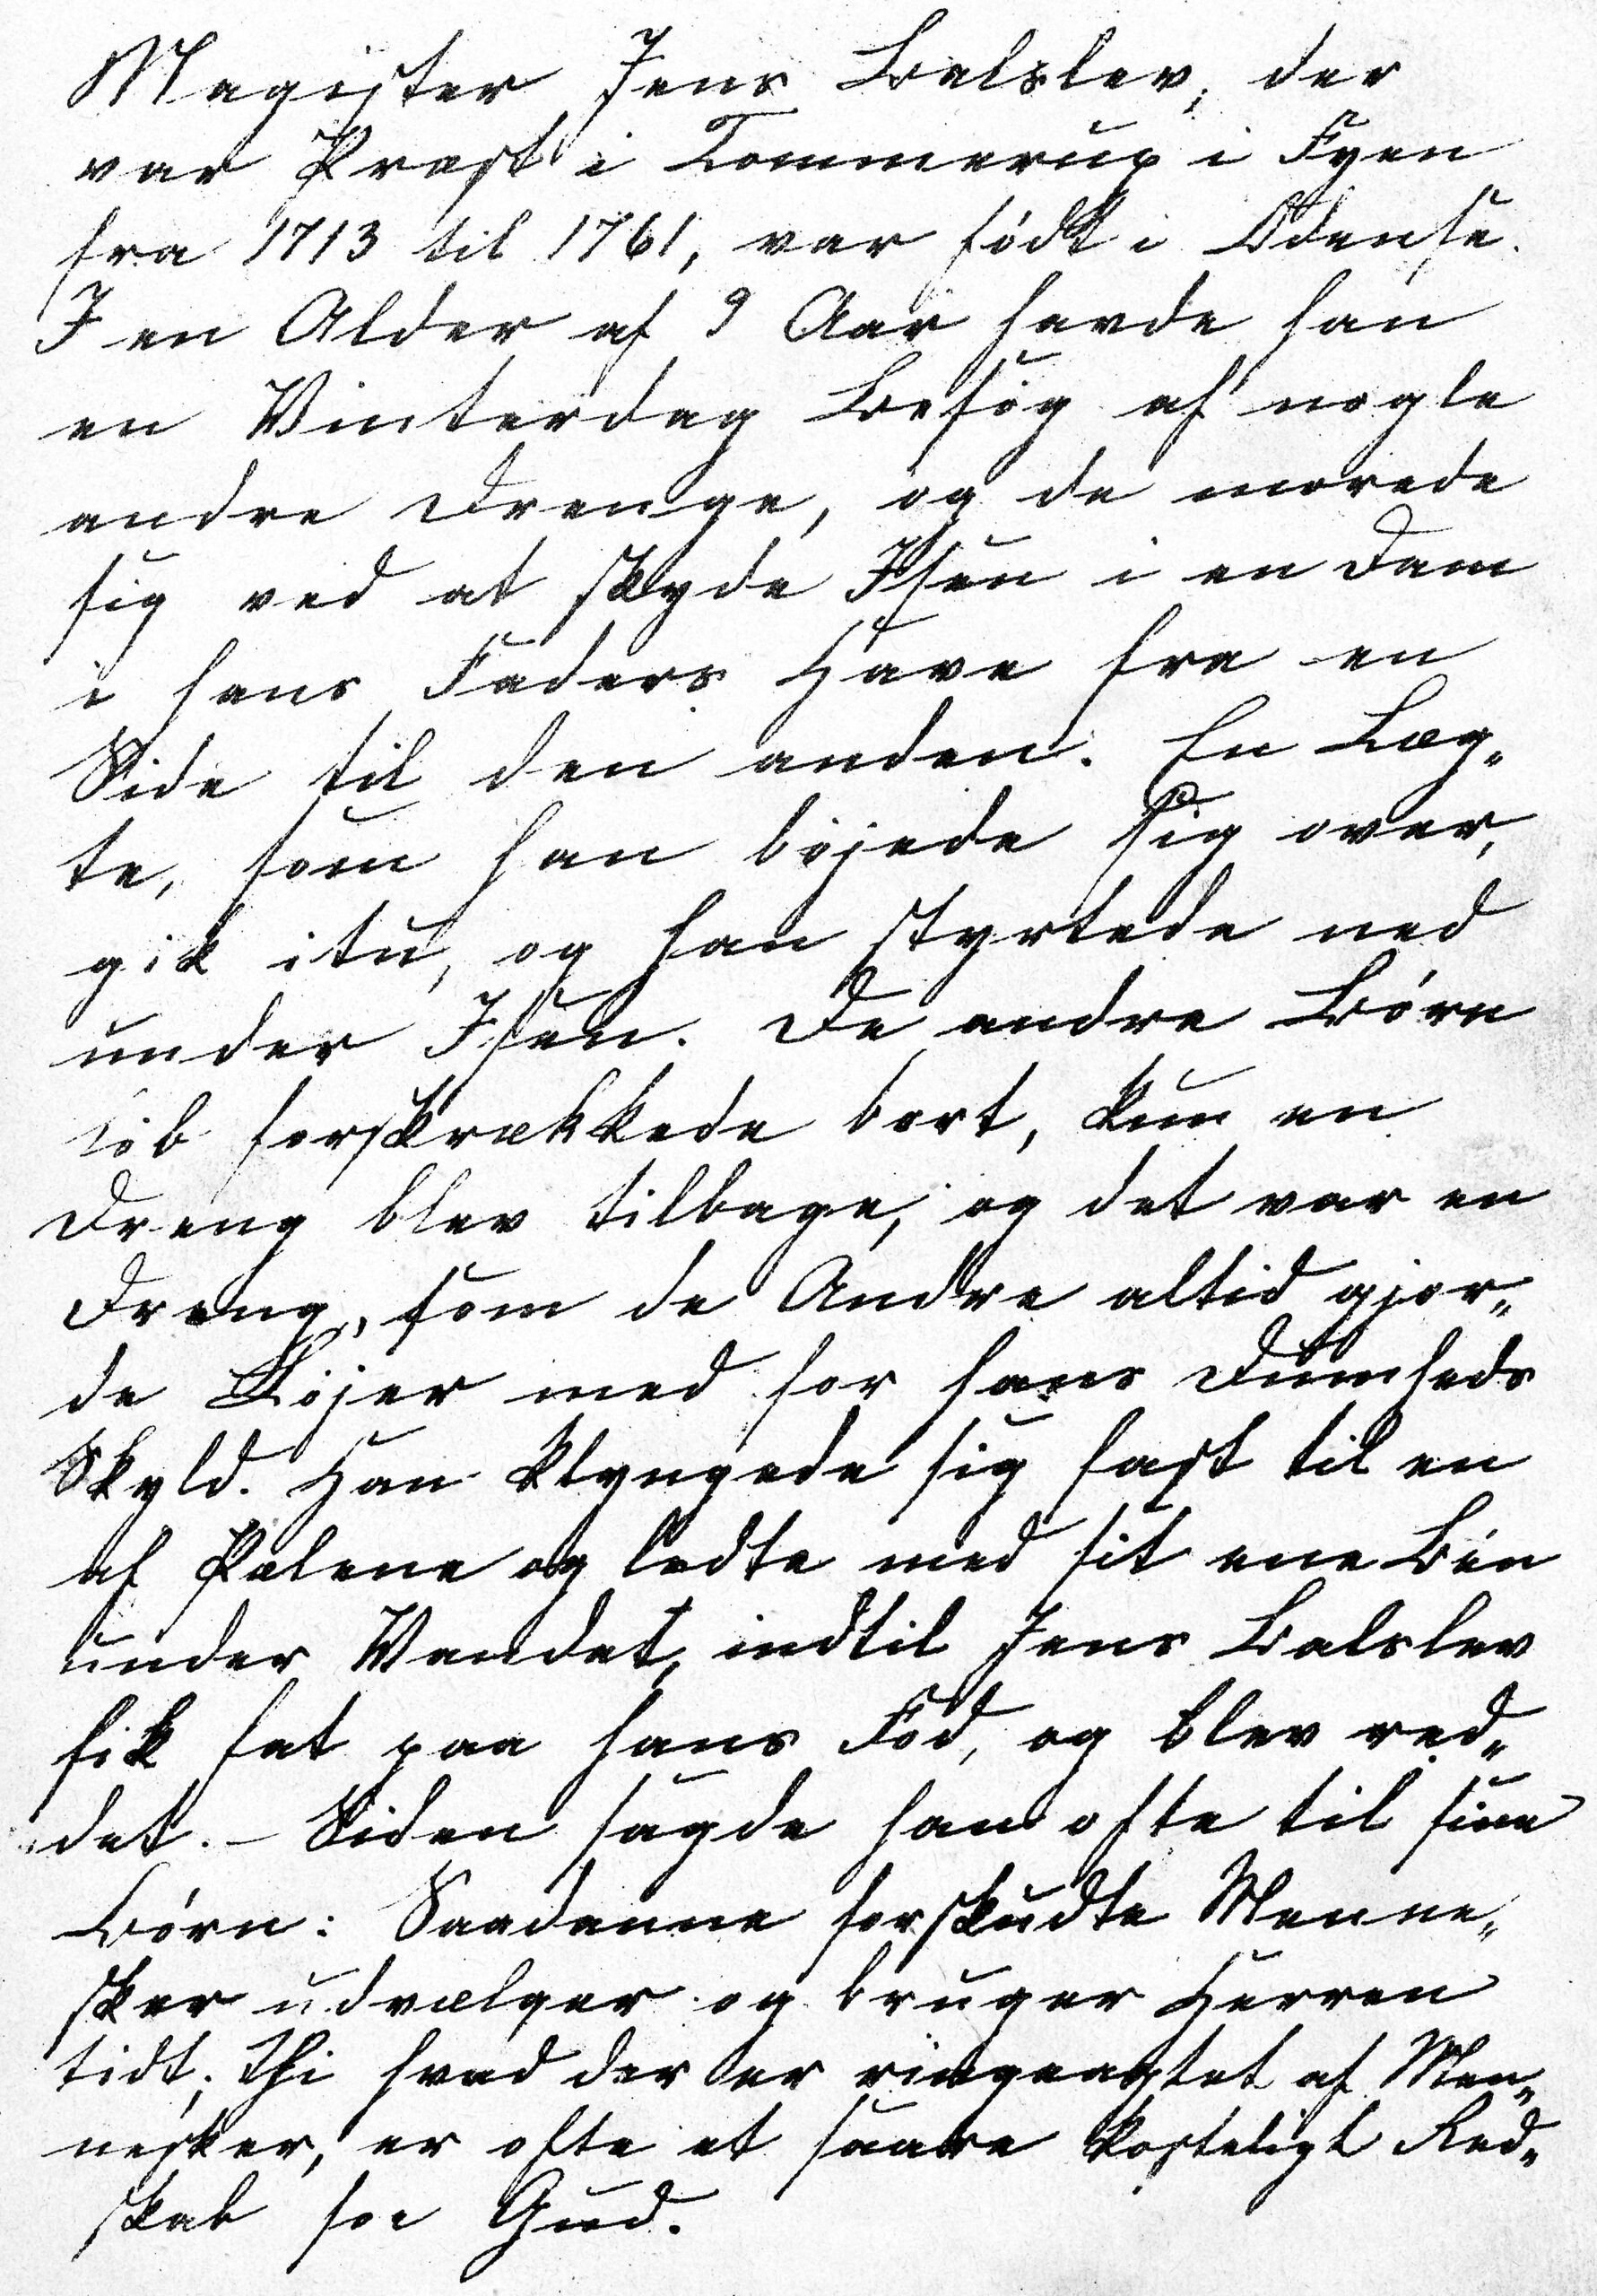 Magister Jens Balslev, der
var Præst i Tommerup i Fyen
fra 1713 til 1761, var födt i Odense.
I en Alder af 9 Aar havde han
en Vinterdag Besög af nogle
andre Drenge, og de morede
sig ved at skyde Isen i en Dam
i hans Faders Have fra en
Side til den anden. En Læg„
te, som han böjede sig over,
gik itu, og han styrtede ned
under Isen. De andre Börn
löb forskrækkede bort, kun en
Dreng blev tilbage, og det var en
Dreng, som de Andre altid gjor„
de Löjer med for hans Dumheds
Skyld. Han klyngede sig fast til en
af Pælene og ledte med sit ene Ben
under Vandet, indtil Jens Balslev
fik fat paa hans Fod, og blev red„
det. – Siden sagde han ofte til sine
Börn: Saadanne forskudte Menne„
sker udvælger og bruger Herren
tidt; thi hvad der er ringeagtet af Men„
nesker, er ofte et saare kosteligt Red„
skab for Gud.